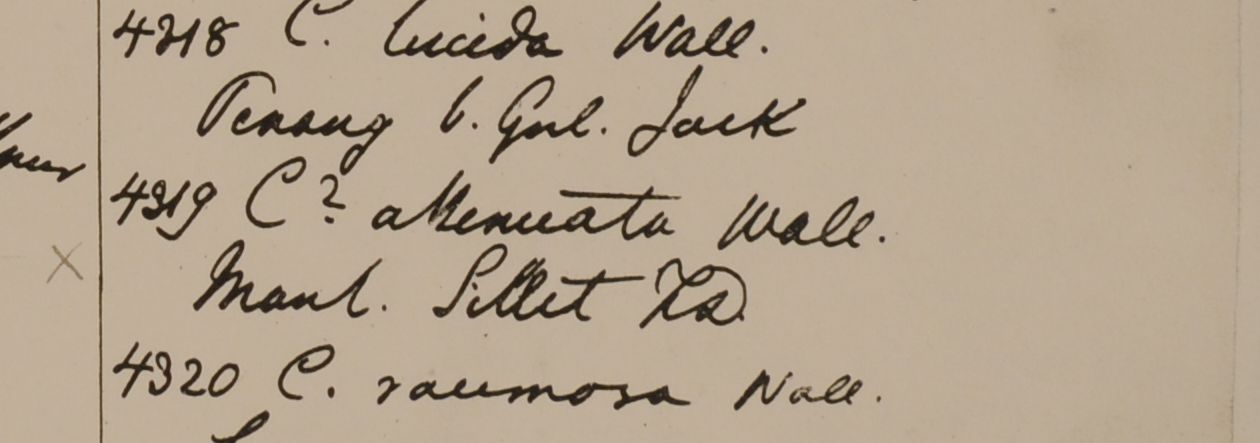 4318 C. lucida Wall.
Penang b. Gul. Jack
4319 C? attenuata Wall.
Mont. Sillet
4320 C. racemosa Wall.